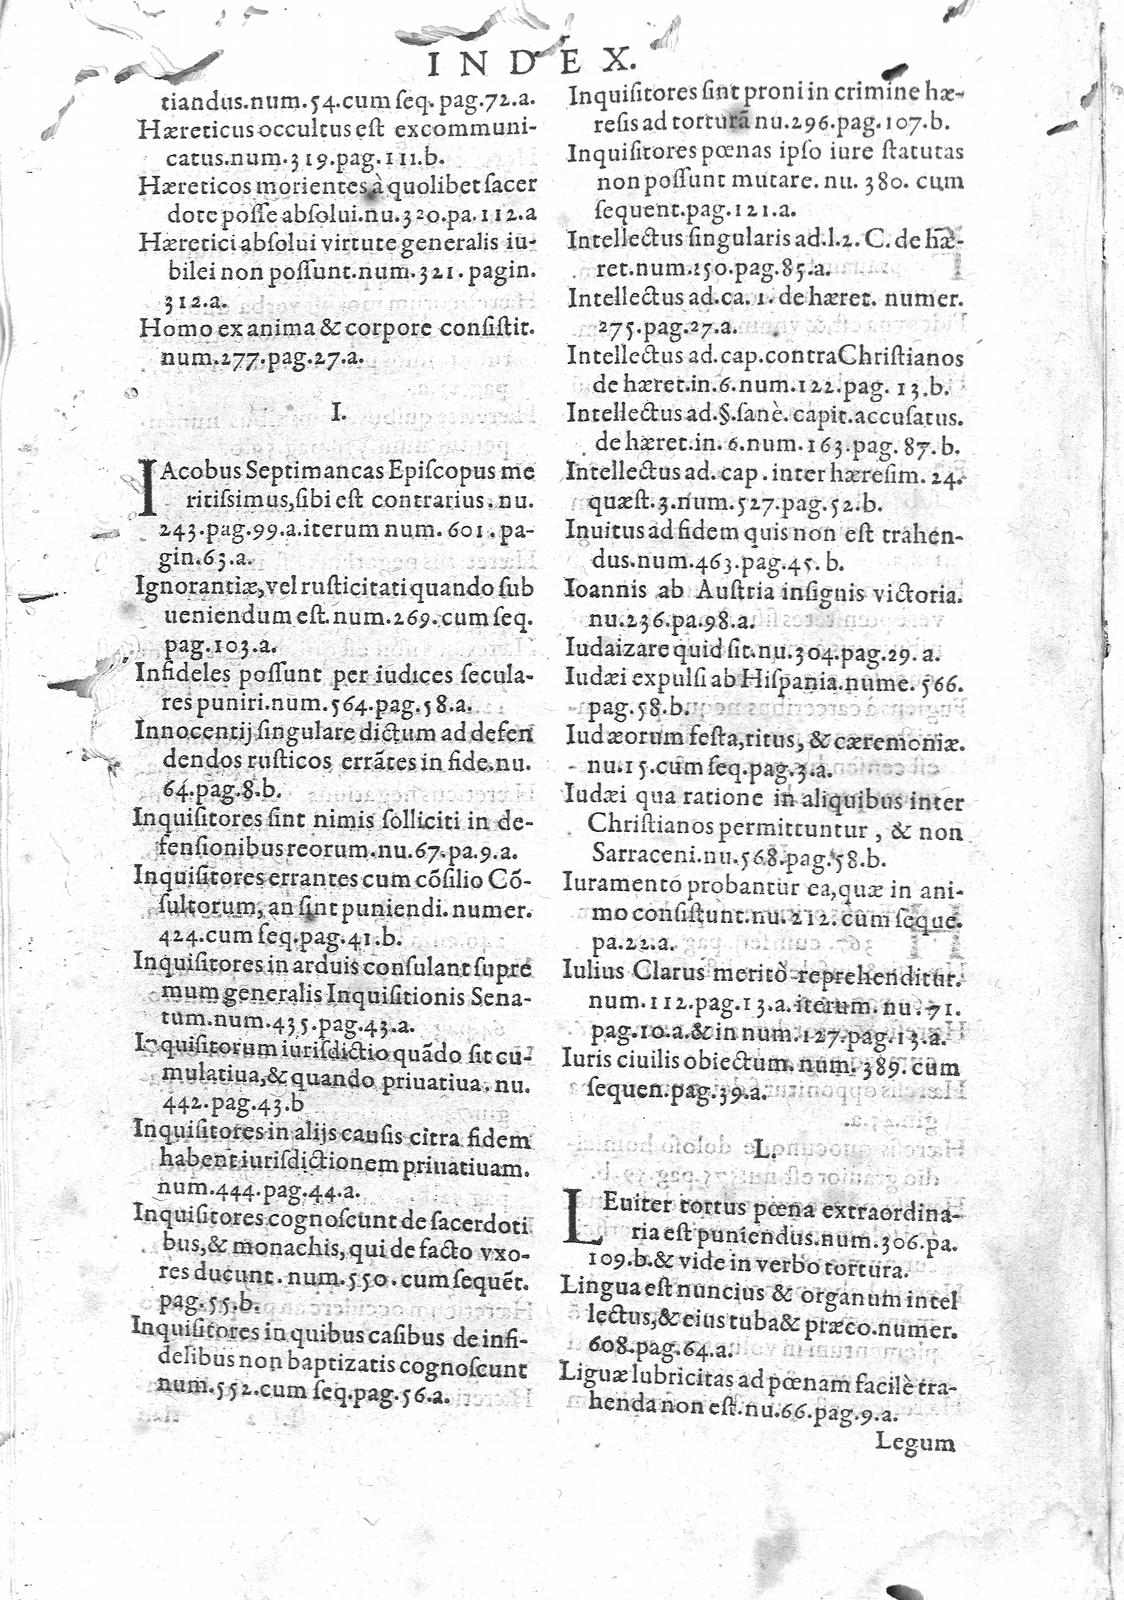 INDEX.
tiandus.num.54.cum ſeq. pag.72.a.
Hæreticus occultus eſt excommuni-
catus.num.319.pag.111.b.
Hæreticos morientes à quolibet ſacer
dote poſſe abſolui.nu.320.pa.112.a
Hæretici abſolui virtute generalis iu-
bilei non poſſunt.num.321. pagin.
312.a.
Homo ex anima & corpore conſiſtit.
num.277.pag.27.a.
I.
IAcobus Septimancas Epiſcopus me
ritiſsimus,ſibi eſt contrarius. nu.
243.pag.99.a.iterum num. 601. pa-
gin.63.a.
Ignorantiæ,vel ruſticitati quando ſub
ueniendum eſt.num.269.cum ſeq.
pag.103.a.
Infideles poſſunt per iudices ſecula-
res puniri.num.564.pag.58.a.
Innocentij ſingulare dictum ad defen
dendos ruſticos errãtes in fide.nu.
64.pag.8.b.
Inquiſitores ſint nimis ſolliciti in de-
fenſionibus reorum.nu.67.pa.9.a.
Inquiſitores errantes cum cõſilio Cõ-
ſultorum, an ſint puniendi. numer.
424.cum ſeq.pag.41.b.
Inquiſitores in arduis conſulant ſupre
mum generalis Inquiſitionis Sena-
tum.num.435.pag.43.a.
Inquiſitorum iuriſdictio quãdo ſit cu-
mulatiua,& quando priuatiua. nu.
442.pag.43.b
Inquiſitores in alijs cauſis citra fidem
habent iuriſdictionem priuatiuam.
num.444.pag.44.a.
Inquiſitores cognoſcunt de ſacerdoti
bus,& monachis, qui de facto vxo-
res ducunt. num.550. cum ſequẽt.
pag.55.b.
Inquiſitores in quibus caſibus de infi-
delibus non baptizatis cognoſcunt
num.552.cum ſeq.pag.56.a.
Inquiſitores ſint proni in crimine hæ-
reſis ad torturã nu.296.pag.107.b.
Inquiſitores pœnas ipſo iure ſtatutas
non poſſunt mutare. nu. 380. cum
ſequent.pag.121.a.
Intellectus ſingularis ad.l.2. C. de hæ-
ret.num.150.pag.85.a.
Intellectus ad.ca. 1. de hæret. numer.
275.pag.27.a.
Intellectus ad.cap.contra Chriſtianos
de hæret.in.6.num.122.pag. 13.b.
Intellectus ad.§.ſanè. capit.accuſatus.
de hæret.in. 6.num.163.pag. 87.b.
Intellectus ad. cap . inter hæreſim. 24.
quæſt.3.num.527.pag.52.b.
Inuitus ad fidem quis non eſt trahen-
dus.num.463.pag.45. b.
Ioannis ab Auſtria inſignis victoria.
nu.236.pa.98.a.
Iudaizare quid ſit.nu.304.pag.29. a.
Iudæi expulſi ab Hiſpania.nume. 566.
pag.58.b.
Iudæorum feſta,ritus, & cæremoniæ.
nu.15.cum ſeq.pag.3.a.
Iudæi qua ratione in aliquibus inter
Chriſtianos permittuntur , & non
Sarraceni.nu.568.pag.58.b.
Iuramento probantur ea,quæ in ani-
mo conſiſtunt.nu.212.cum ſeque.
pa.22.a.
Iulius Clarus meritò reprehenditur.
num.112.pag.13.a.iterum.nu.71.
pag.10.a.& in num.127.pag.13.a.
Iuris ciuilis obiectum. num. 389. cum
ſequen.pag.39.a.
L.
LEuiter tortus pœna extraordina-
ria eſt puniendus.num.306.pa.
109.b.& vide in verbo tortura.
Lingua eſt nuncius & organum intel
lectus,& eius tuba& præco.numer.
608.pag.64.a.
Liguæ lubricitas ad pœnam facilè tra-
henda non eſt.nu.66.pag.9.a.
Legum